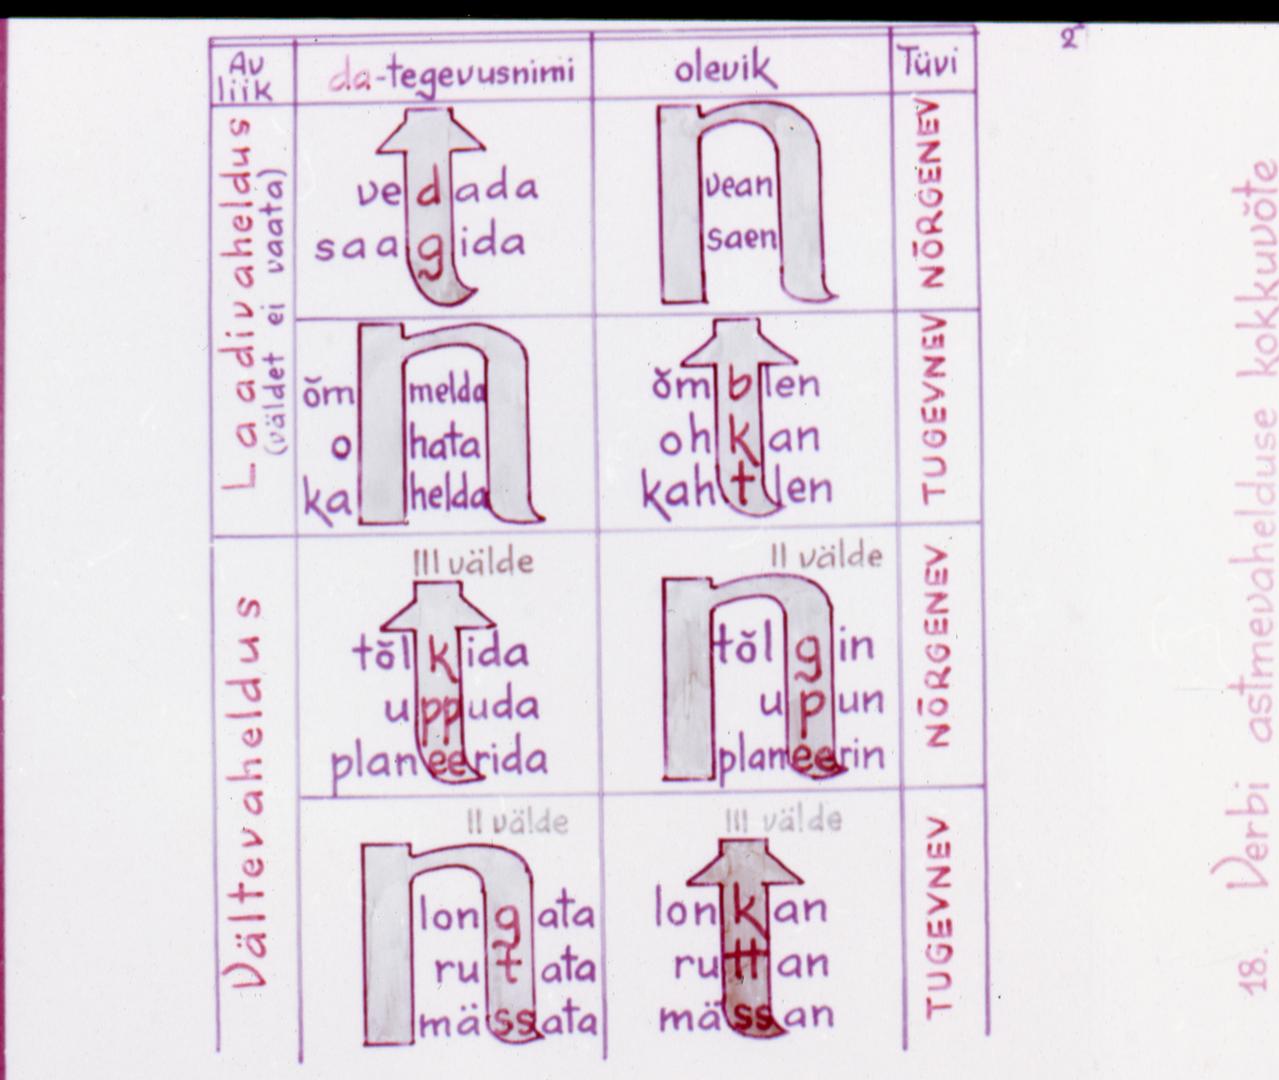 2
Av liik
da-tegevusnimi
olevik
Tüvi
Laadivaheldus
(väldet ei vaata)
vedada
saagida
n
vean
saen
NÕRGENEV
n
õmmelda
ohata
kahelda
õmblen
ohkan
kahtlen
TUGEVNEV
Vältevaheldus
III välde
tõlkida
uppuda
planeerida
II välde
n
tõlgin
upun
planeerin
NÕRGENEV
II välde
n
longata
rutata
mässata
III välde
lonkan
ruttan
mässan
TUGEVNEV
18. Verbi astmevahelduse kokkuvõte